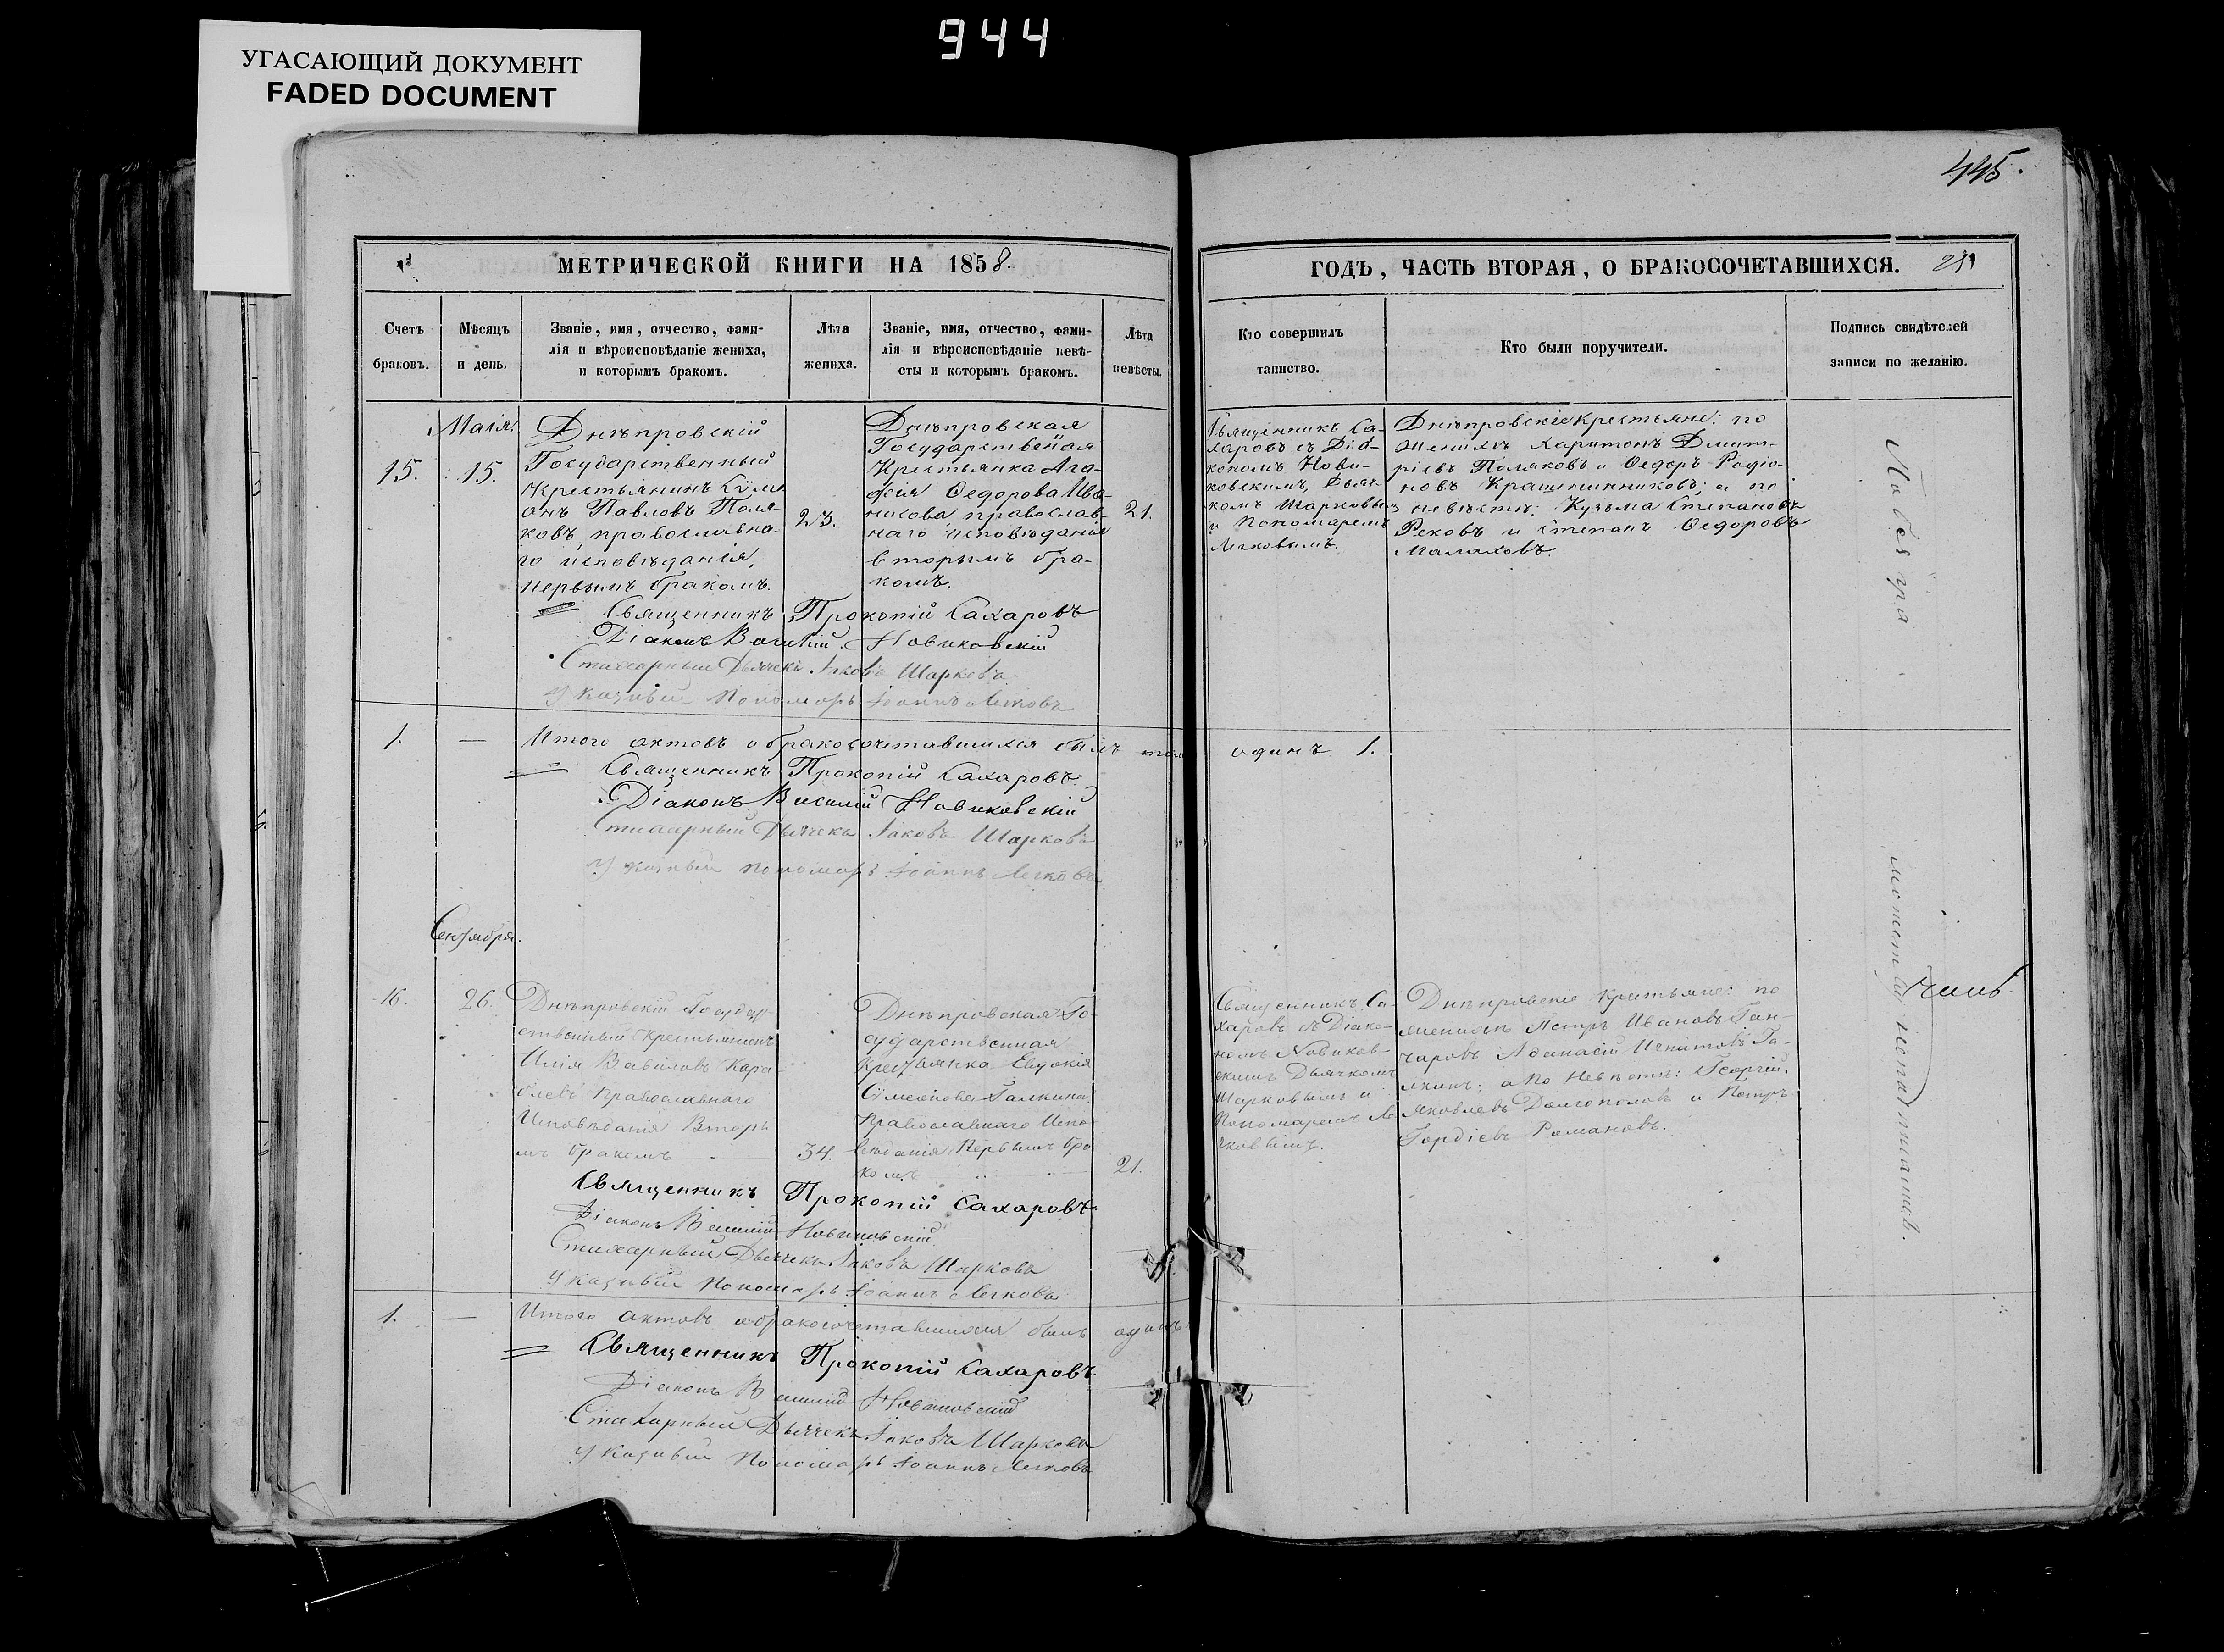 944
УГАСАЮЩИЙ ДОКУМЕНТ
FADED DOCUMENT
445.
МЕТРИЧЕСКОЙ КНИГИ НА 1858.
Счетъ браковъ.
Мѣсяцъ и день.
Званіе, имя, отчество, фами-
лія и вѣроисповѣданіе жениха,
и которымъ бракомъ.
Лѣта жениха.
Званіе, имя, отчество, фами-
лія и вѣроисповѣданіе невѣ-
сты и которымъ бракомъ.
Лѣта невѣсты.
ГОДЪ, ЧАСТЬ ВТОРАЯ, О БРАКОСОЧЕТАВШИХСЯ.
Кто совершилъ
таинство.
Кто были поручители.
Подпись свидѣтелей
записи по желанію.
15.
Маія.
15.
Днѣпровскій
Государственный
Крестьянинъ Сѵме
онъ Павловъ Поля-
ковъ, православна-
го исповѣданія,
первымъ бракомъ.
23.
Днѣпровская
Государственная
Крестьянка Ага-
фія Федорова Ива-
никова православ-
наго исповѣданія
вторымъ бра-
комъ.
21.
Священникъ Са-
харовъ съ Діа-
кономъ Нови-
ковскимъ, Дьяч-
комъ Шарковымъ
и Пономаремъ
Легковымъ.
Днѣпровскіе крестьяне: по
женихѣ Харитонъ Дмит-
ріевъ Поляковъ и Федоръ Родіо-
новъ Крашенинниковъ; а по
невѣстѣ: Кузьма Степановъ
Рековъ и Степанъ Федоровъ
Малаховъ.
Священникъ Прокопій Сахаровъ
Діаконъ Василій Новиковскій
Стихарный Дьячекъ Іаковъ Шарковъ
Указный Пономарь Іоаннъ Легковъ
1. — Итого актовъ о бракосочетавшихся былъ
одинъ 1.
Священникъ Прокопій Сахаровъ
Діаконъ Василій Новиковскій
Стихарный Дьячекъ Іаковъ Шарковъ
Указный Пономарь Іоаннъ Легковъ
Сентября.
16.
26.
Днѣпровскій Государ-
ственный Крестьянинъ
Илія Вавиловъ Кара-
блевъ Православнаго
Исповѣданія Вторы
мъ бракомъ
34.
Днѣпровская Го-
сударственная
Крестьянка Евдокія
Сѵмеонова Галкина
Православнаго Испо-
вѣданія Первымъ бра
комъ
21.
Священникъ Са-
харовъ съ Діако-
номъ Новиков-
скимъ Дьячкомъ
Шарковымъ и
Пономаремъ Ле
гковымъ.
Днѣпровскіе крестьяне: по
женихѣ Петръ Ивановъ Ган-
чаровъ Афанасій Игнатовъ Га-
лкинъ; а по Невѣстѣ: Георгій
Яковлевъ Долгополовъ и Петръ
Гордіевъ Романовъ.
Священникъ Прокопій Сахаровъ
Діаконъ Василій Новиковскій
Стихарный Дьячекъ Іаковъ Шарковъ
Указный Пономарь Іоаннъ Легковъ
1. — Итого актовъ о бракосочетавшихся былъ одинъ
Священникъ Прокопій Сахаровъ
Діаконъ Василій Новиковскій
Стихарный Дьячекъ Іаковъ Шарковъ
Указный Пономарь Іоаннъ Легковъ